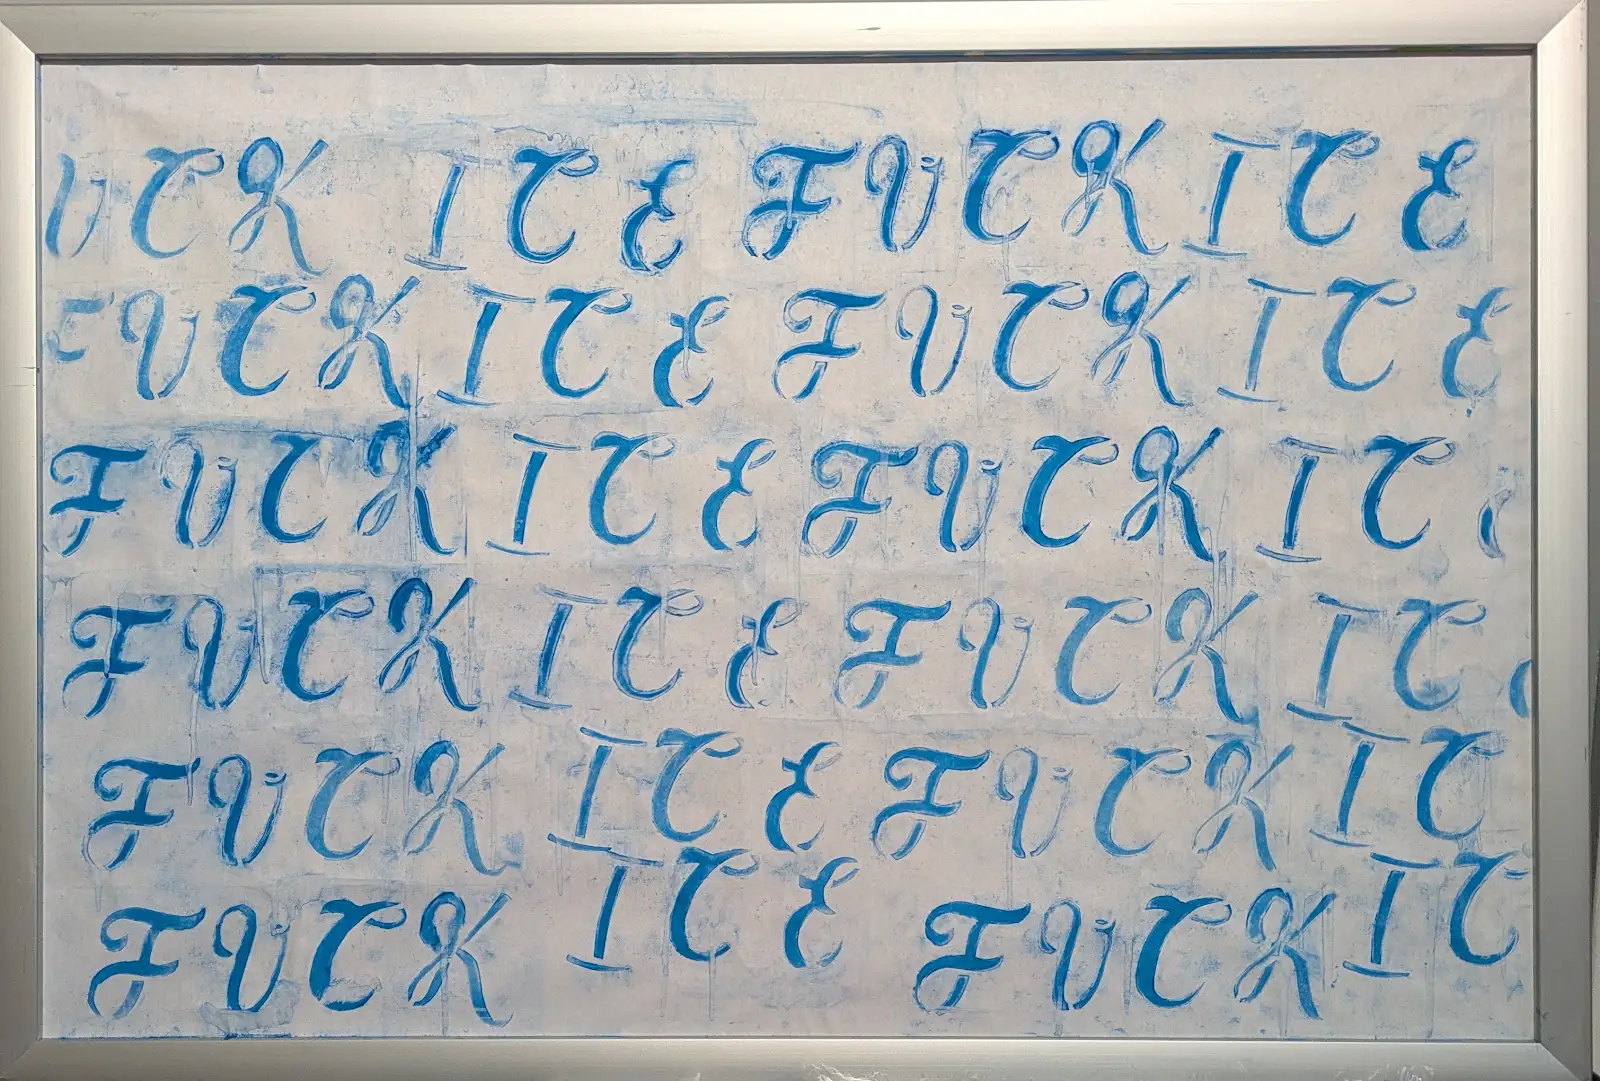 UCK ICE FUCK ICE
FUCK ICE FUCK ICE
FUCK ICE FUCK IC
FUCK ICE FUCK IC
FUCK ICE FUCK IC
FUCK ICE FUCK IC